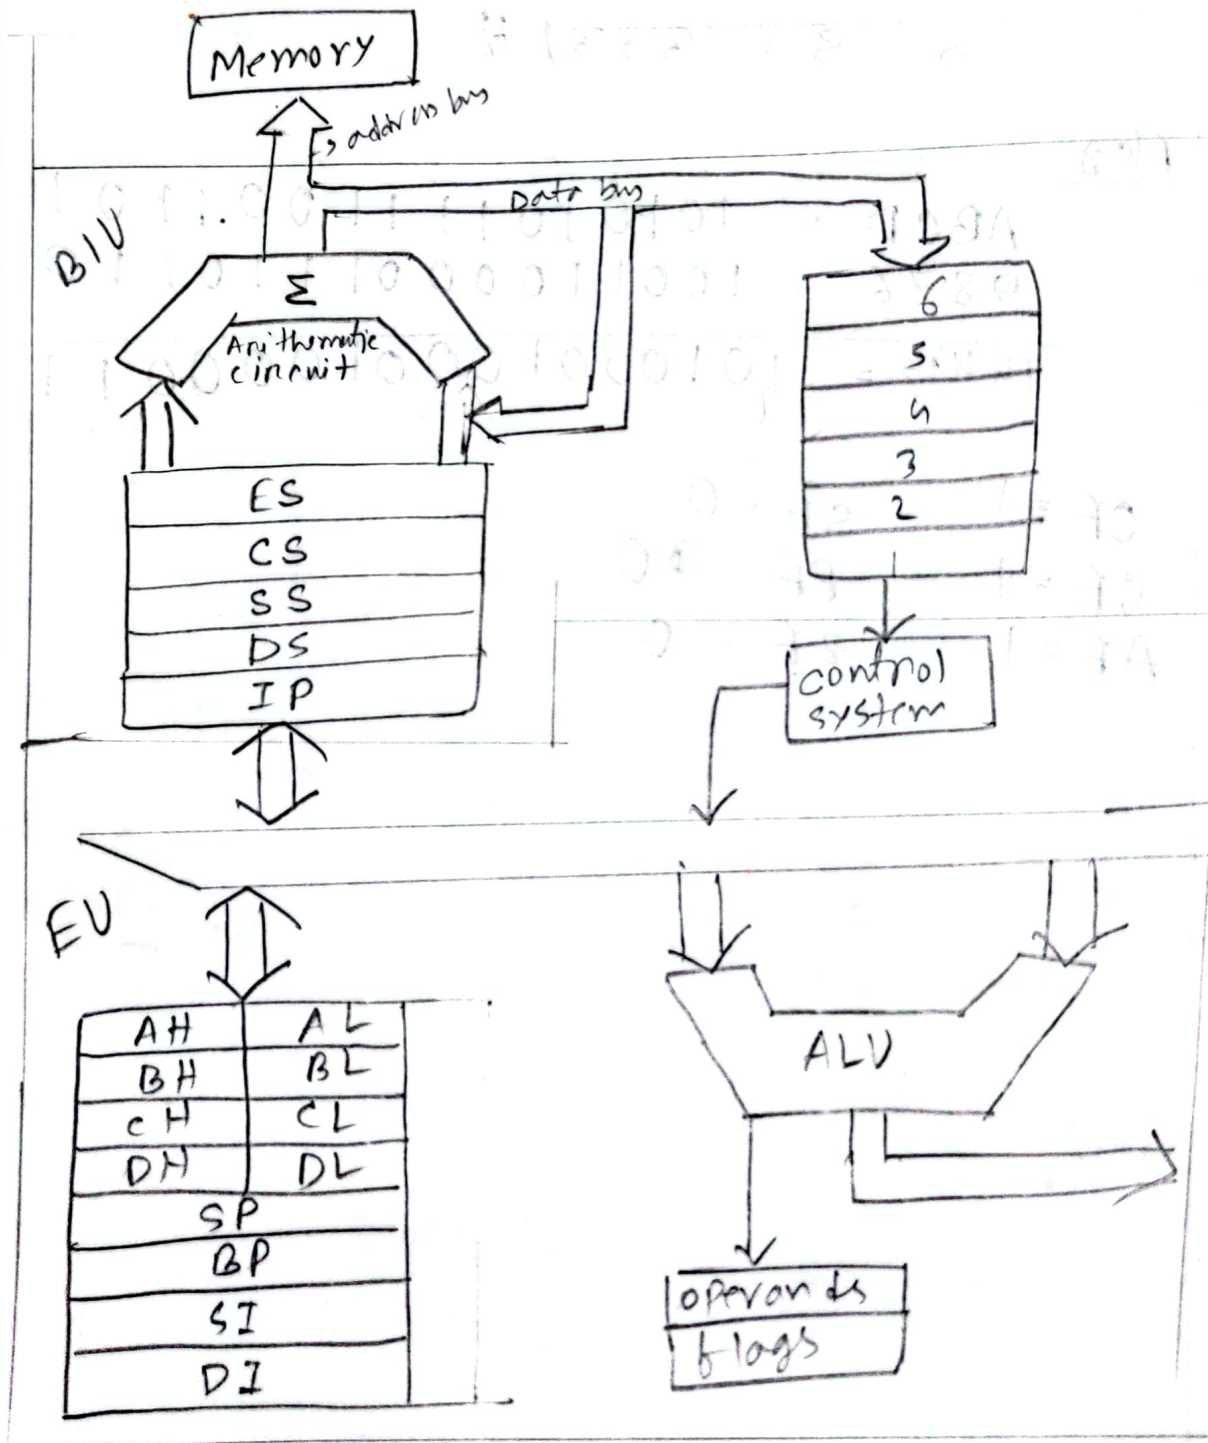 Memory
address bus
Data bus
BIU
Σ
Arithematic
circuit
6
5
4
3
2
1
ES
CS
SS
DS
IP
control
system
EU
AH AL
BH BL
CH CL
DH DL
SP
BP
SI
DI
ALU
operands
flags